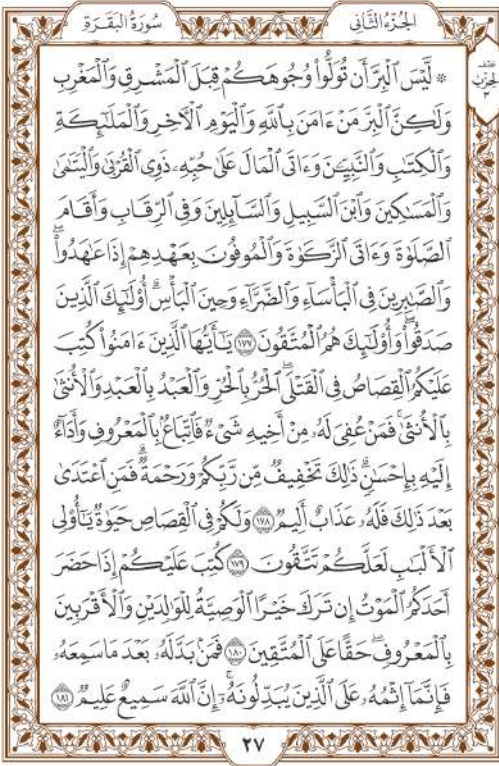 الجُزْءُ الثَّانِي
سُورَةُ البَقَرَةِ
نصف
الحزب
٣
۞ لَّيْسَ ٱلْبِرَّ أَن تُوَلُّواْ وُجُوهَكُمْ قِبَلَ ٱلْمَشْرِقِ وَٱلْمَغْرِبِ
وَلَٰكِنَّ ٱلْبِرَّ مَنْ ءَامَنَ بِٱللَّهِ وَٱلْيَوْمِ ٱلْأٓخِرِ وَٱلْمَلَٰٓئِكَةِ
وَٱلْكِتَٰبِ وَٱلنَّبِيِّـۧنَ وَءَاتَى ٱلْمَالَ عَلَىٰ حُبِّهِۦ ذَوِي ٱلْقُرْبَىٰ وَٱلْيَتَٰمَىٰ
وَٱلْمَسَٰكِينَ وَٱبْنَ ٱلسَّبِيلِ وَٱلسَّآئِلِينَ وَفِي ٱلرِّقَابِ وَأَقَامَ
ٱلصَّلَوٰةَ وَءَاتَى ٱلزَّكَوٰةَ وَٱلْمُوفُونَ بِعَهْدِهِمْ إِذَا عَٰهَدُواْۖ
وَٱلصَّٰبِرِينَ فِي ٱلْبَأْسَآءِ وَٱلضَّرَّآءِ وَحِينَ ٱلْبَأْسِۗ أُوْلَٰٓئِكَ ٱلَّذِينَ
صَدَقُواْۖ وَأُوْلَٰٓئِكَ هُمُ ٱلْمُتَّقُونَ ١٧٧ يَٰٓأَيُّهَا ٱلَّذِينَ ءَامَنُواْ كُتِبَ
عَلَيْكُمُ ٱلْقِصَاصُ فِي ٱلْقَتْلَىۖ ٱلْحُرُّ بِٱلْحُرِّ وَٱلْعَبْدُ بِٱلْعَبْدِ وَٱلْأُنثَىٰ
بِٱلْأُنثَىٰۚ فَمَنْ عُفِيَ لَهُۥ مِنْ أَخِيهِ شَيْءٞ فَٱتِّبَاعُۢ بِٱلْمَعْرُوفِ وَأَدَآءٌ
إِلَيْهِ بِإِحْسَٰنٖۗ ذَٰلِكَ تَخْفِيفٞ مِّن رَّبِّكُمْ وَرَحْمَةٞۗ فَمَنِ ٱعْتَدَىٰ
بَعْدَ ذَٰلِكَ فَلَهُۥ عَذَابٌ أَلِيمٞ ١٧٨ وَلَكُمْ فِي ٱلْقِصَاصِ حَيَوٰةٞ يَٰٓأُوْلِي
ٱلْأَلْبَٰبِ لَعَلَّكُمْ تَتَّقُونَ ١٧٩ كُتِبَ عَلَيْكُمْ إِذَا حَضَرَ
أَحَدَكُمُ ٱلْمَوْتُ إِن تَرَكَ خَيْرًا ٱلْوَصِيَّةُ لِلْوَٰلِدَيْنِ وَٱلْأَقْرَبِينَ
بِٱلْمَعْرُوفِۖ حَقًّا عَلَى ٱلْمُتَّقِينَ ١٨٠ فَمَنۢ بَدَّلَهُۥ بَعْدَ مَا سَمِعَهُۥ
فَإِنَّمَآ إِثْمُهُۥ عَلَى ٱلَّذِينَ يُبَدِّلُونَهُۥٓۚ إِنَّ ٱللَّهَ سَمِيعٌ عَلِيمٞ ١٨١
٢٧